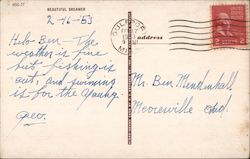 BEAUTIFUL DREAMER
2-16-53
Hello Ben - The
weather is fine
but fishing is
out, and swimming
is for the young.
Geo.
GULFPORT
MISS
address
Mr. Ben Mendenhall
Mooresville Ind.